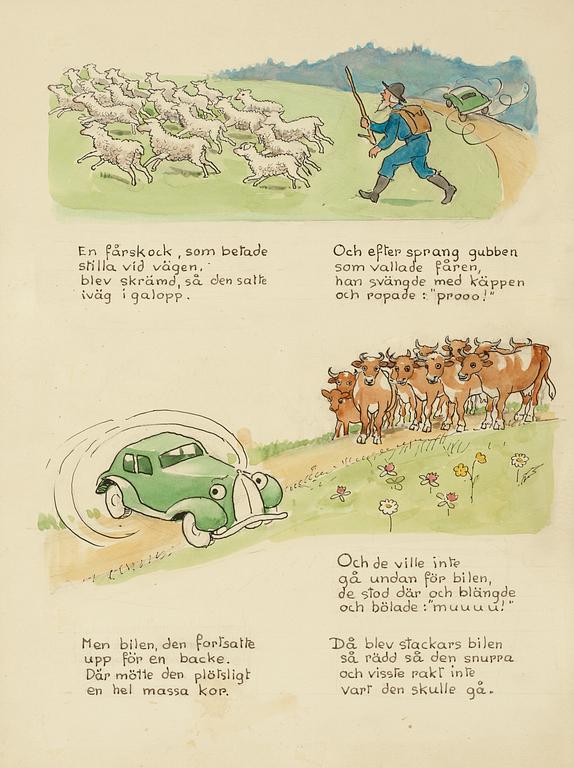 En fårskock, som betade
stilla vid vägen.
blev skrämd, så den satte
iväg i galopp.
Och efter sprang gubben
som vallade fåren,
han svängde med käppen
och ropade: "prooo!"
Men bilen, den fortsatte
upp för en backe.
Där mötte den plötsligt
en hel massa kor.
Och de ville inte
gå undan för bilen,
de stod där och blängde
och bölade: "muuuu!"
Då blev stackars bilen
så rädd så den snurra
och visste rakt inte
vart den skulle gå.